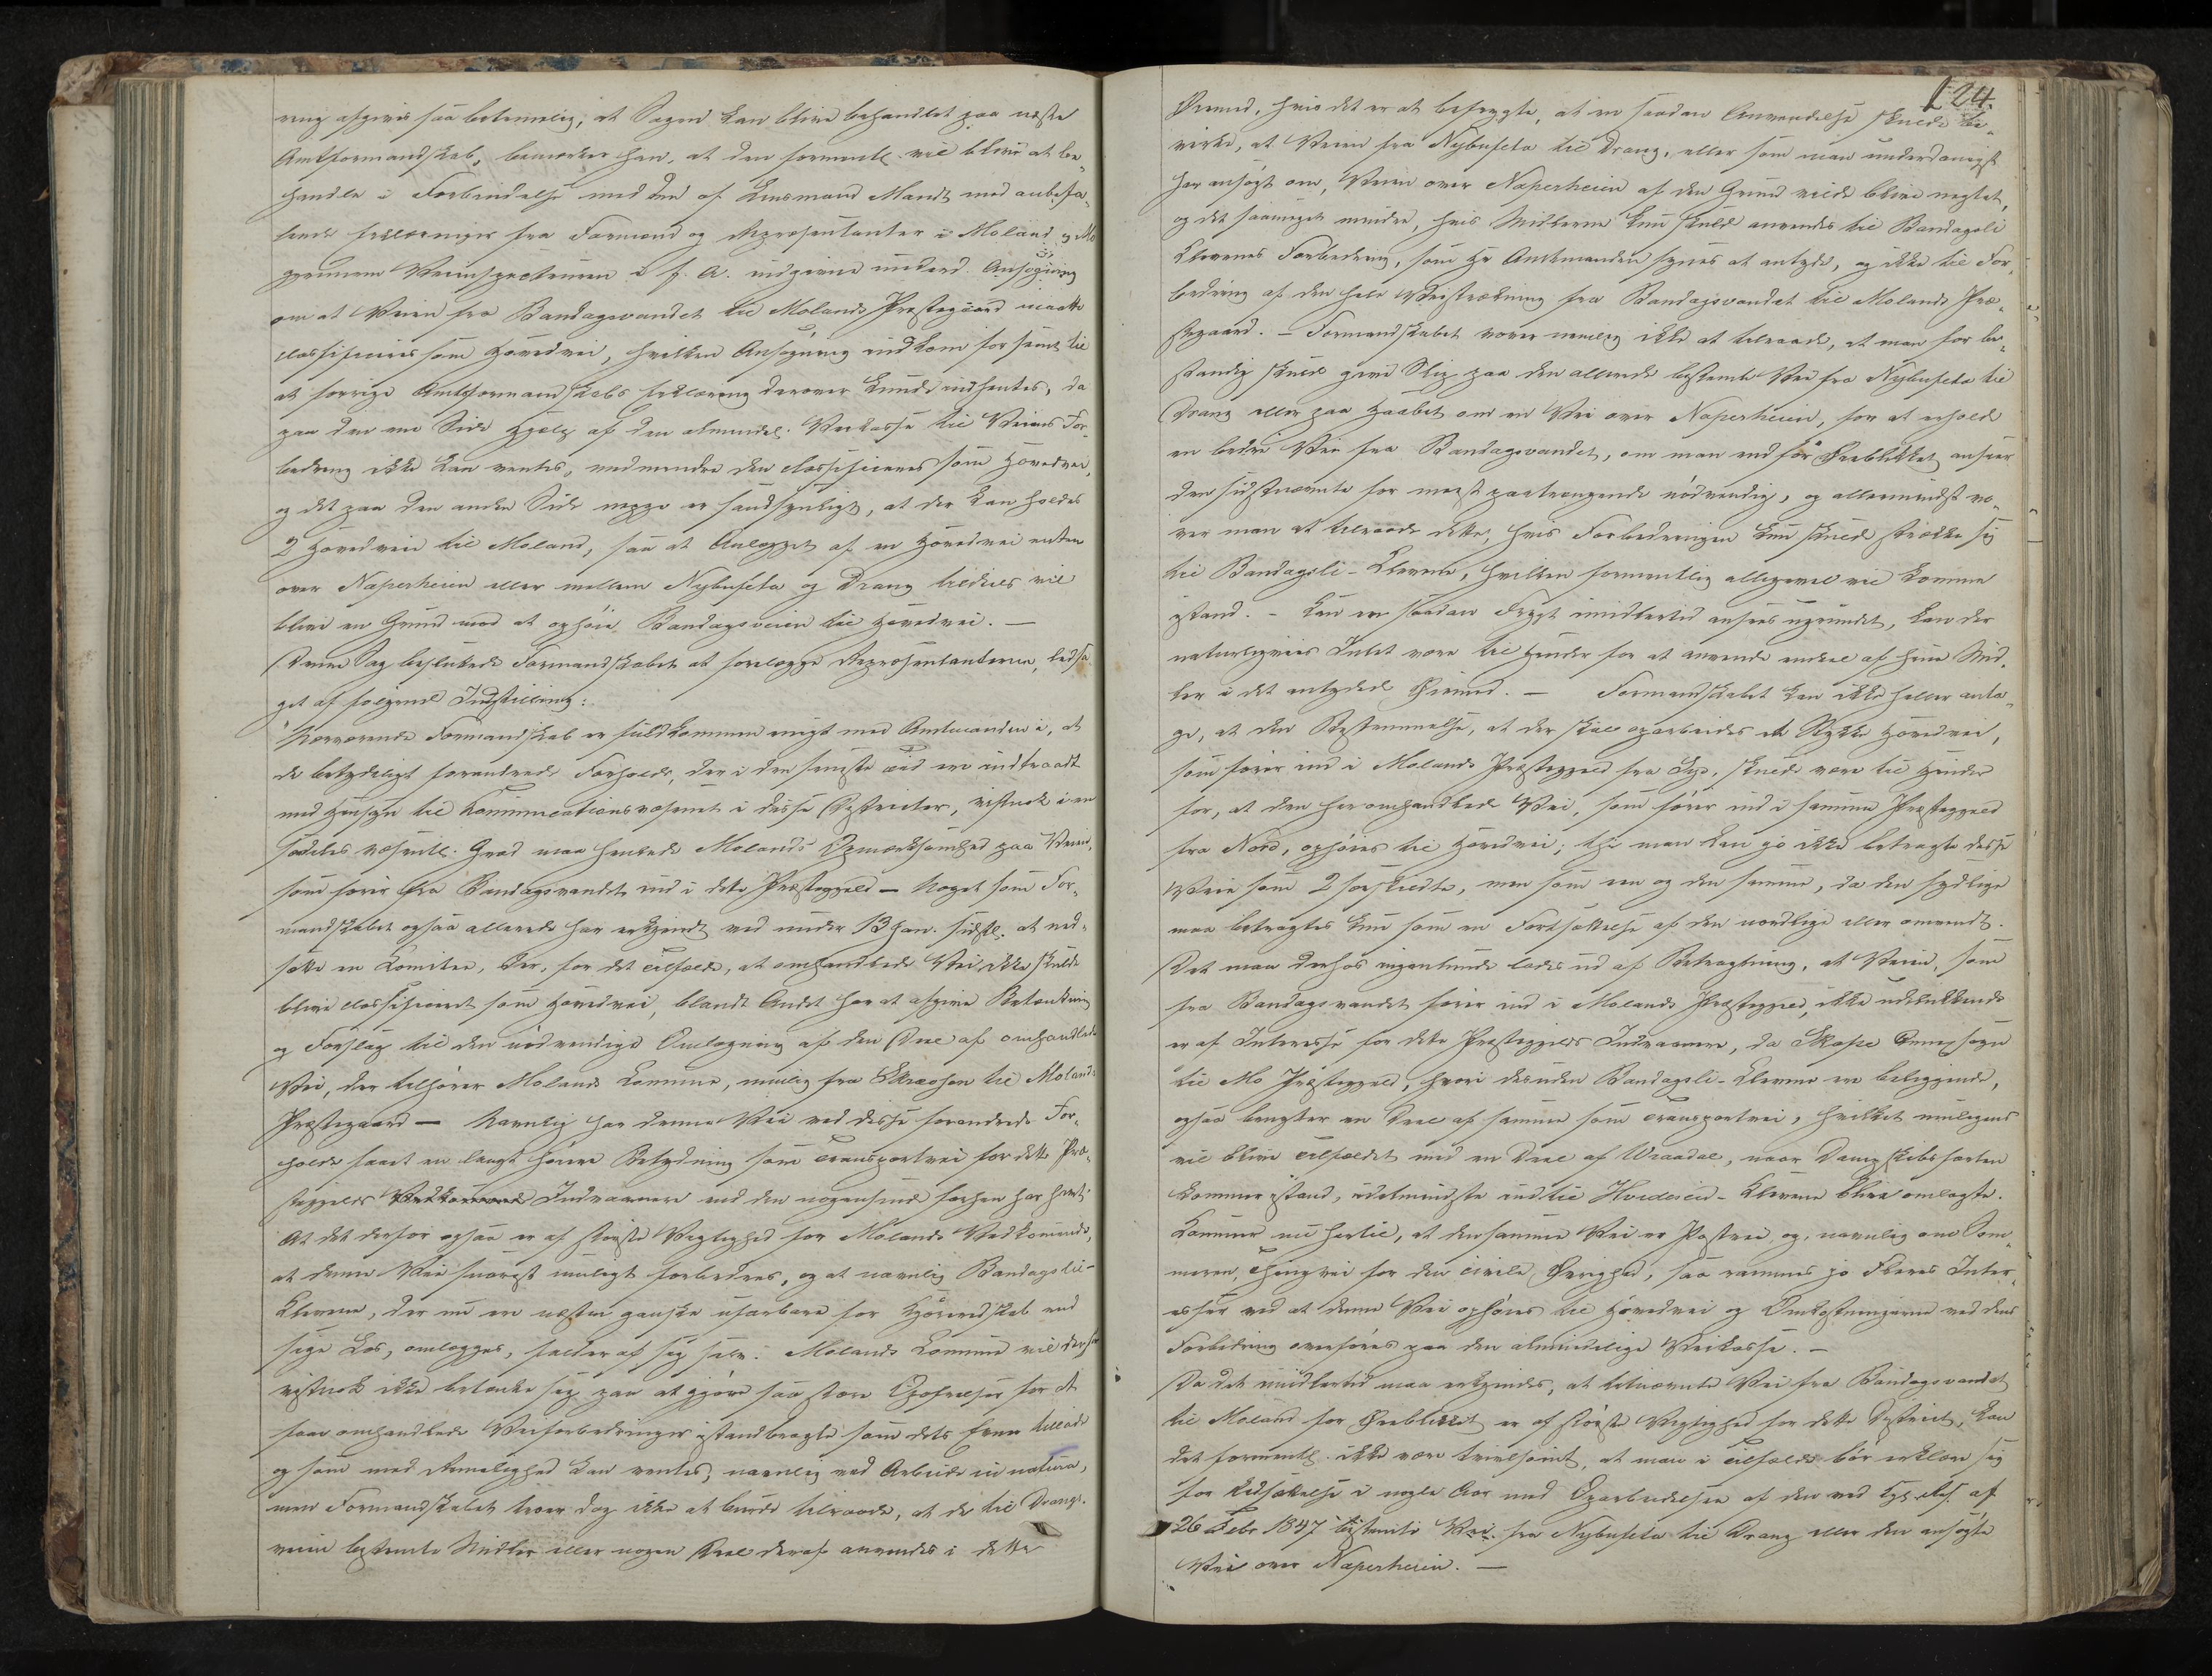 ring afgives saa betimelig, at Sagen kan blive behandlet paa næste
Amtsformandskab, bemærker han, at den formentl. vil blive at be-
handle i Forbindelse med den af Lensmand Mandt med anbefa-
lende Erklæringer fra Formænd og Repræsentanter i Moland og Mo
gjennem Veiinspecteuren i f. A. indgivne underd. Ansøgning
om at Veien fra Bandagsvandet til Molands Præstegaard maatte
classificeres som Hovedvei, hvilken Ansøgning indkom for sent til
at forrige Amtsformandskabs Erklæring derover kunde indhentes, da
paa den ene Side Hjelp af den almindel. Veikasse til Veiens For-
bedring ikke kan ventes, medmindre den classificeres som Hovedvei,
og det paa den anden Side neppe er sandsynligt, at der kan holdes
2 Hovedveie til Moland, saa at Anlægget af en Hovedvei enten
over Naperheien eller mellem Nybufeta og Drang vil
blive en Grund mod at ophøie Bandagsveien til Hovedvei. —
Denne Sag besluttede Formandskabet at forelægge Repræsentanterne, ledsa-
get af følgende Indstilling:
"Nærværende Formandskab er fuldkommen enigt med Amtmanden i, at
de betydeligt forandrede Forholde, der i den seneste Tid ere indtraadt
med Hensyn til Kommunicationsvæsenet i disse Distrikter, vistnok i en
særdeles væsentl. Grad maa henlede Molands Opmærksomhed paa Veien,
som fører fra Bandagsvandet ind i dette Præstegjeld — Noget som For-
mandskabet ogsaa allerede har erkjendt ved under 13 Jan. sidstl. at ned-
sætte en Komitee, der, for det Tilfælde, at omhandlede Vei ikke skulde
blive classificeret som Hovedvei, blandt Andet har at afgive Betænkning
og Forslag til den nødvendige Omlægning af den Deel af omhandlede
Vei, der tilhører Molands Commune, nemlig fra Skræosen til Molands
Præstegaard — Navnlig har denne Vei ved disse forandrede For-
holde faaet en langt høiere Betydning som Transportvei for dette Præ-
stegjelds Indvaanere end den nogensinde forhen har havt;
At det derfor ogsaa er af største Vigtighed for Molands Vedkommende,
at denne Vei snarest muligt forbedres, og at navnlig Bandagsli-
Kleven, der nu er næsten ganske ufarbare for Kjøreredskab end
sige Læs, omlægges, falder af sig selv. Molands Commune vil derfor
vistnok ikke betænke sig paa at gjøre saa store Opofrelser for at
faae omhandlede Veiforbedringer istandbragte som dets Evne tillade
og som med Rimelighed kan ventes, navnlig ved Arbeide in natura,
men Formandskabet troer dog ikke at burde tilraade, at de til Drang-
veien bestemte Midler eller nogen Deel deraf anvendes i dette

224.
Øiemed, hvis det er at befrygte, at en saadan Anvendelse skulde be-
virke, at Veien fra Nybufeta til Drang, eller som man underdanigst
har ansøgt om, Veien over Naperheien af den Grund vilde blive negtet,
og det saameget mindre, hvis Midlerne kun skulde anvendes til Bandagsli
Klevenes Forbedring, som Hr Amtmanden synes at antyde, og ikke til For-
bedring af den hele Veistrækning fra Bandagsvandet til Molands Præ-
stegaard. — Formandskabet vover nemlig ikke at tilraade, at man for be-
standig skulde give Slip paa den allerede bestemte Vei fra Nybufeta til
Drang eller paa Haabet om en Vei over Naperheien, for at erholde
en bedre Vei fra Bandagsvandet, om man end for Øieblikket anseer
den sidstnævnte for meest paatrængende nødvendig, og allermindst vo-
ver man at tilraade dette, hvis Forbedringen kun skulde strække sig
til Bandagsli-Klevene, hvilken formentlig alligevel vil komme
istand. — Kan en saadan Frygt imidlertid ansees ugrundet, kan der
naturligviis Intet være til Hinder for at anvende endeel af hine Mid-
ler i det antydede Øiemed. — Formandskabet kan ikke heller anta-
ge, at den Bestemmelse, at der skal oparbeides et Stykke Hovedvei,
som fører ind i Molands Præstegjeld fra Syd, skulde være til Hinder
for, at den heromhandlede Vei, som fører ind i samme Præstegjeld
fra Nord, ophøies til Hovedvei; thi man kan jo ikke betragte disse
Veie som 2 forskjellige, men som een og den samme, da den sydlige
maa betragtes kun som en Fortsættelse af den nordlige eller omvendt.
Det maa derhos ingenlunde lades ud af Betragtning, at Veien, som
fra Bandagsvandet fører ind i Molands Præstegjeld, ikke udelukkende
er af Interesse for dette Præstegjelds Indvaanere, da Skafse Annexsogn
til Mo Præstegjeld, hvori desuden Bandagsli-Klevene ere beliggende,
ogsaa benytter en Deel af samme som Transportvei, hvilket muligens
vil blive Tilfældet med en Deel af Vraadal, naar Dampskibsfarten
kommer istand, idetmindste indtil Hvideseid-Klevene blive omlagte.
Kommer nu hertil, at densamme Vei er Postvei, og, navnlig om Som-
meren, Thingvei for den civile Øvrighed, saa rammes jo Fleres Inter-
esser ved at denne Vei ophøies til Hovedvei og Omkostningerne ved dens
Forbedring overføres paa den almindelige Veikasse. —
Da det imidlertid maa erkjendes, at bemeldte Vei fra Bandagsvandet
til Moland for Øieblikket er af største Vigtighed for dette District, kan
det formentl. ikke være tvivlsomt, at man i Tilfælde bør erklære sig
for Udsættelse i nogle Aar med Oparbeidelsen af den ved Kgl. Res. af
26 Febr 1847 bestemte Vei fra Nybufeta til Drang eller den ansøgte
Vei over Naperheien. —